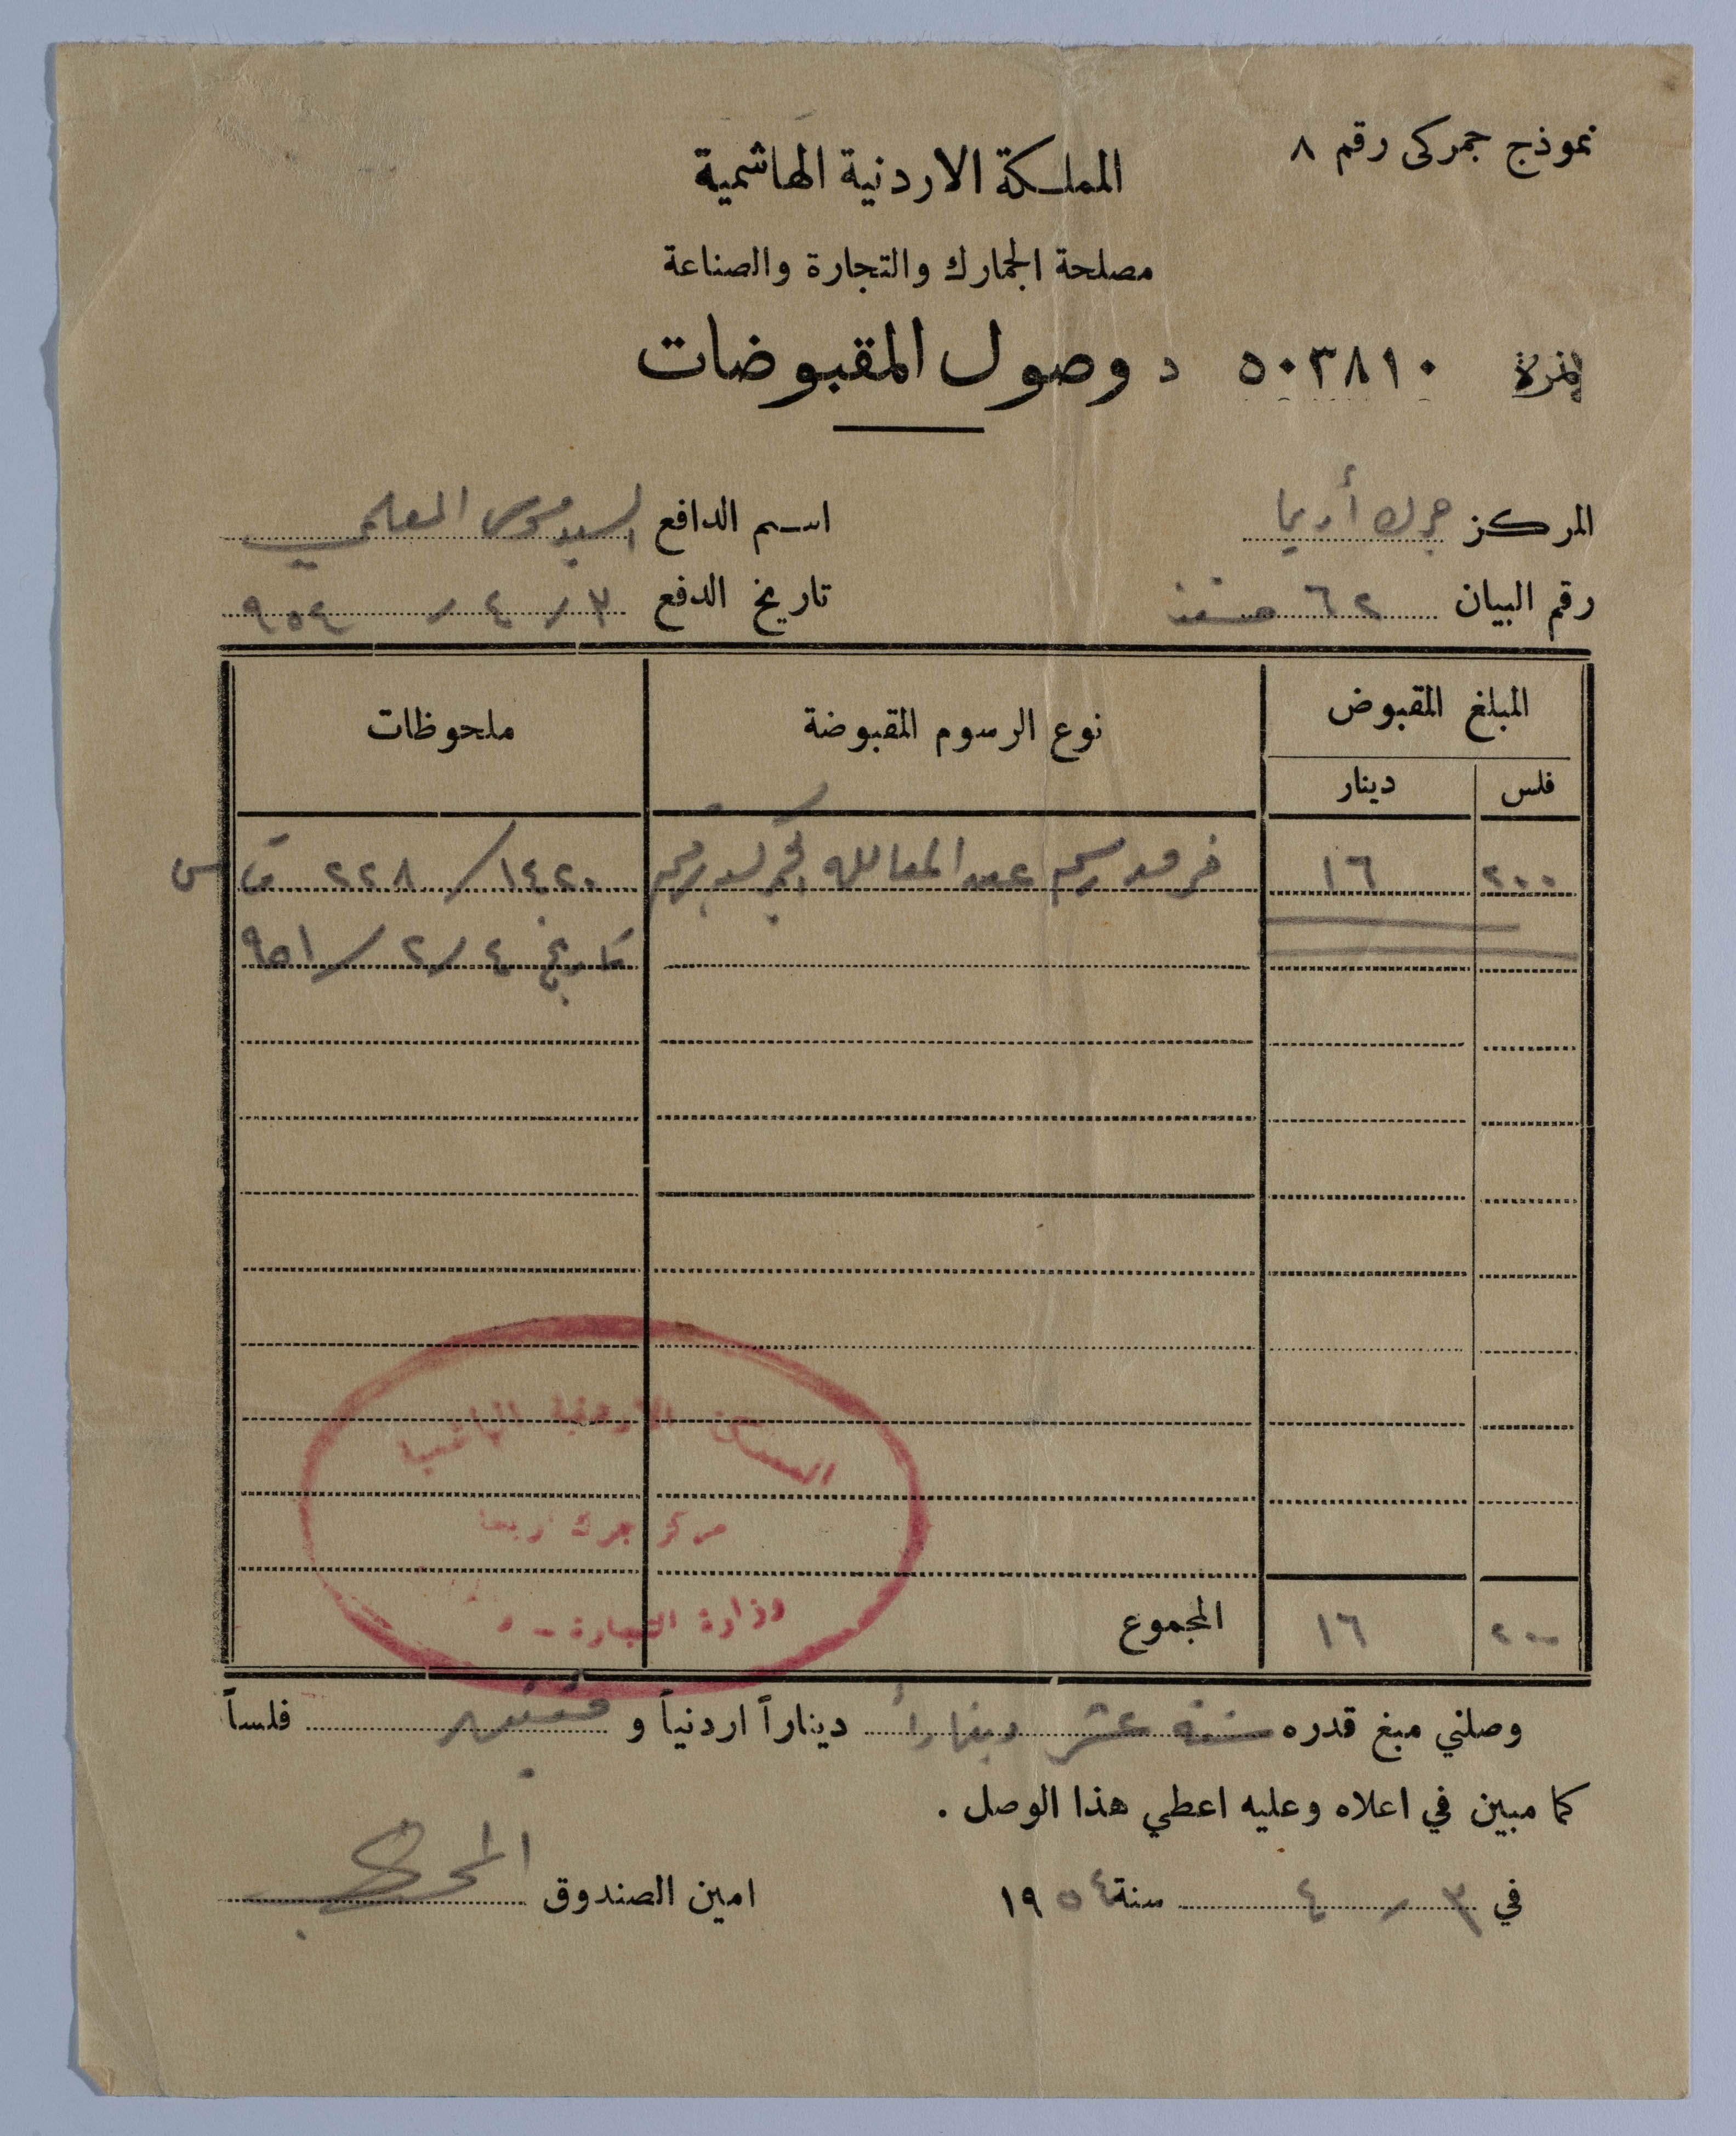 نموذج جمركى رقم ٨
المملكة الاردنية الهاشمية
مصلحة الجمارك والتجارة والصناعة
نمرة ٥٠٣٨١٠ د وصول المقبوضات
المركز جمرك أريحا اسم الدافع السيد موسى العلمي
رقم البيان ٦٢ تاريخ الدفع ٣ / ٤ / ٩٥٤
المبلغ المقبوض نوع الرسوم المقبوضة ملحوظات
فلس دينار
٢٠٠ ١٦ فرق رسم عن المعاملة ١٤٢٠ / ٢٢٨
تاريخ ٤ / ٢ / ٩٥١
المملكة الأردنية الهاشمية
مركز جمرك اريحا
وزارة التجارة
المجموع
٢٠٠ ١٦
وصلني مبغ قدره ستة عشر ديناراً ديناراً اردنياً و مئتين فلساً
كما مبين في اعلاه وعليه اعطي هذا الوصل .
في ٣ / ٤ سنة ١٩٥٤ امين الصندوق